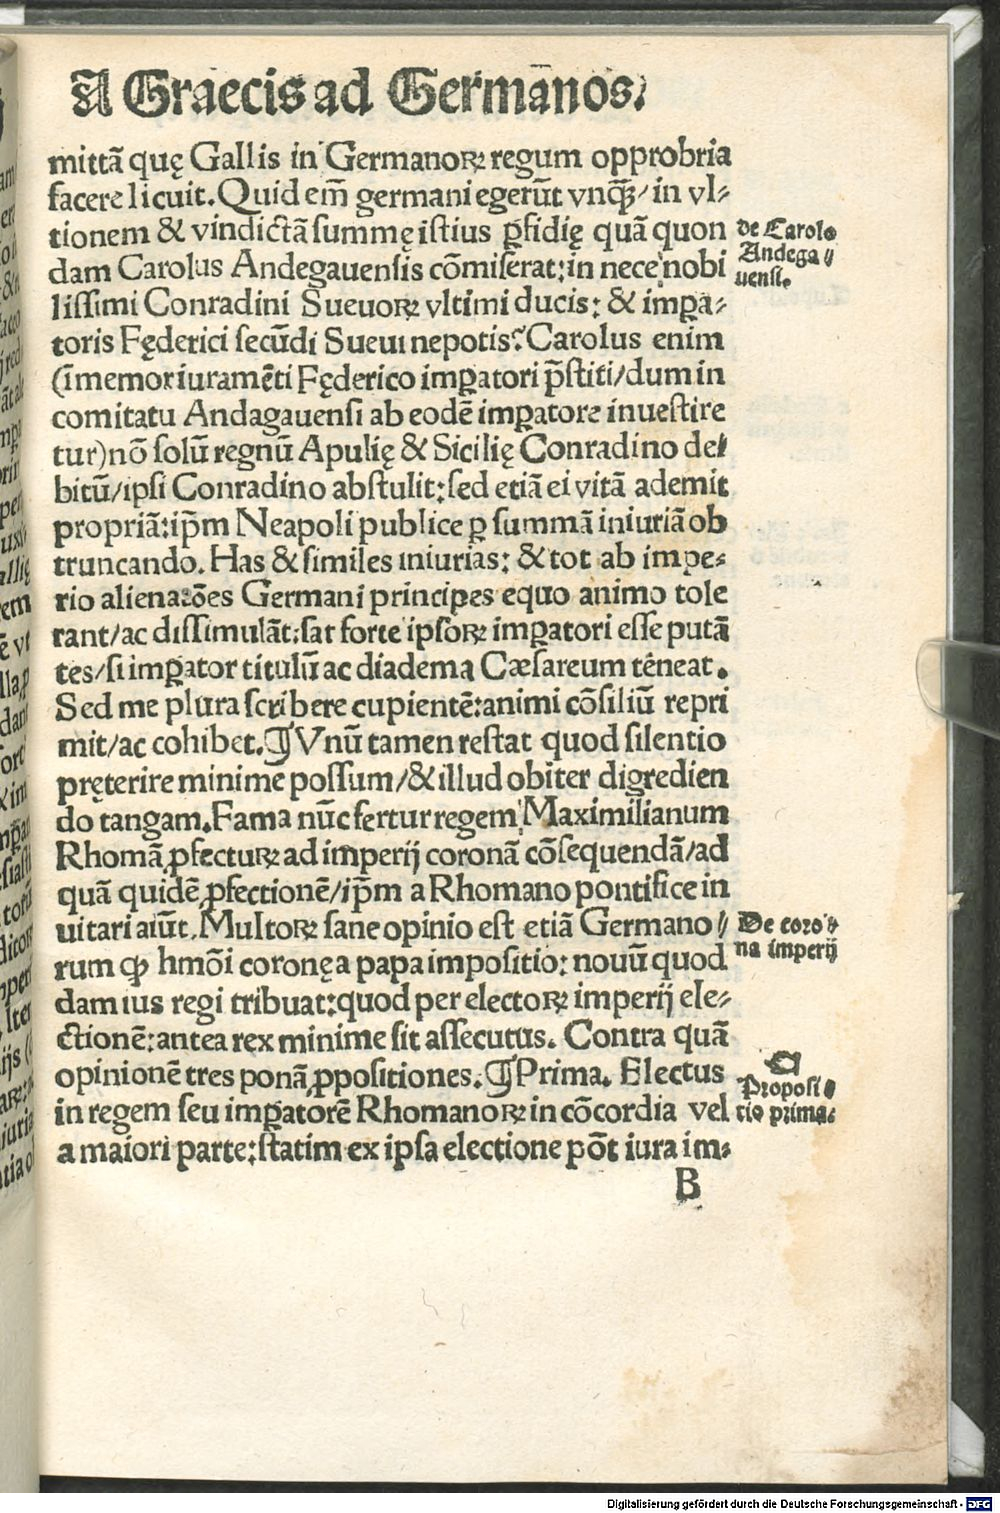 A Graecis ad Germanos.
mittā quę Gallis in Germanoꝝ regum opprobria
facere licuit. Quid em̄ germani egerūt vnqꝫ̄/ in vl⸗
tionem & vindictā summę istius ꝑfidię quā quon
dam Carolus Andegauensis cōmiserat: in nece nobi
lissimi Conradini Sueuoꝝ vltimi ducis: & imꝑa⸗
toris Fęderici secūdi Sueui nepotis? Carolus enim
(īmemor iuramēti Fęderico imꝑatori p̄stiti/ dum in
comitatu Andagauensi ab eodē imꝑatore inuestire
tur) nō solū regnū Apulię & Sicilię Conradino de⸗
bitū/ ipsi Conradino abstulit: sed etiā ei vitā ademit
propriā: ip̄m Neapoli publice ꝑ summā iniuriā ob
truncando. Has & similes iniurias: & tot ab impe⸗
rio alienaōes Germani principes equo animo tole
rant/ ac dissimulāt: sat forte ipsoꝝ imꝑatori esse putā
tes/ si imꝑator titulū ac diadema Cæsareum teneat.
Sed me plura scribere cupientē: animi cōsiliū repri
mit/ ac cohibet. ¶ Vnū tamen restat quod silentio
pręterire minime possum/ & illud obiter digredien
do tangam. Fama nūc fertur regem Maximilianum
Rhomā ꝓfectuꝝ ad imperij coronā cōsequendā/ ad
quā quidē ꝓfectionē/ ip̄m a Rhomano pontifice in
uitari aiūt. Multoꝝ sane opinio est etiā Germano⸗
rum ꝙ hmōi coronę a papa impositio: nouū quod
dam ius regi tribuat: quod per electoꝝ imperij ele⸗
ctionē: antea rex minime sit assecutus. Contra quā
opinionē tres ponā ꝓpositiones. ¶ Prima. Electus
in regem seu imꝑatorē Rhomanoꝝ in cōcordia vel
a maiori parte: statim ex ipsa electione pōt iura im⸗
B
de Carolo
Andega⸗
uensi.
De coro⸗
na imperij
Proposi⸗
tio prima.
Digitalisierung gefördert durch die Deutsche Forschungsgemeinschaft - DFG